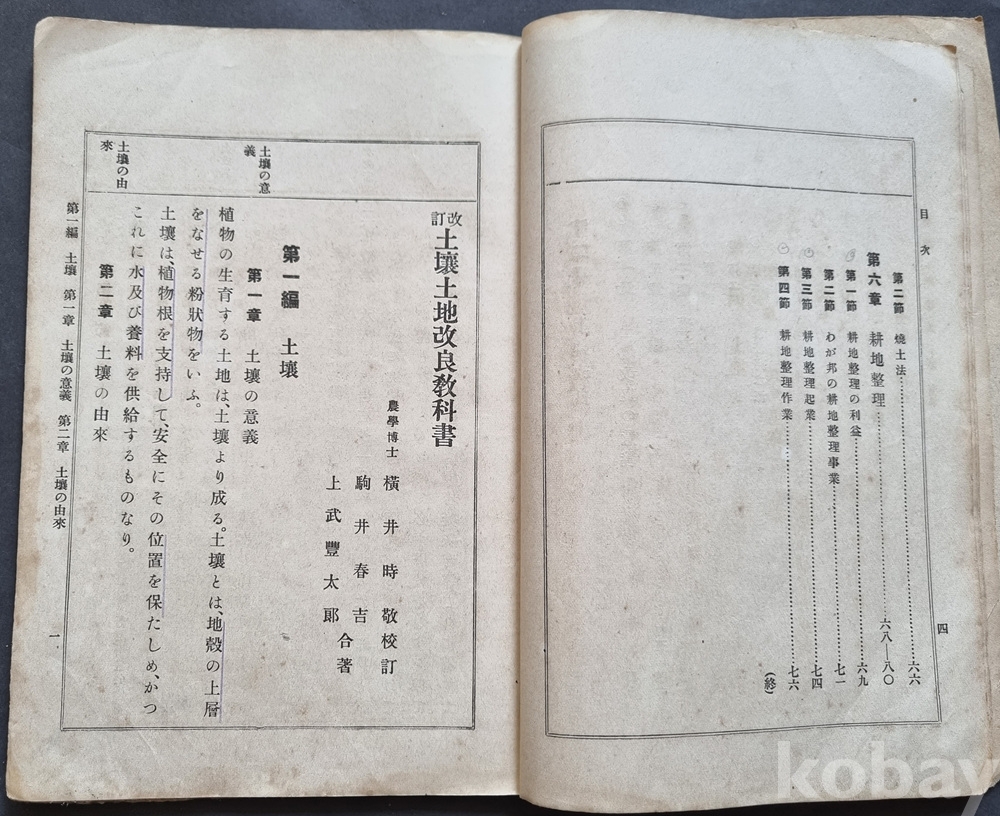 目次
四
第二節 燒土法……六六
第六章 耕地整理……六八―八〇
第一節 耕地整理の利益……六九
第二節 わが邦の耕地整理事業……七一
第三節 耕地整理起業……七四
第四節 耕地整理作業……七六
(終)
改訂 土壤土地改良敎科書
農學博士 橫井時敬校訂
駒井春吉
上武豐太郞
合著
第一編 土壤
土壤の意義
第一章 土壤の意義
植物の生育する土地は、土壤より成る。土壤とは、地殼の上層
をなせる粉狀物をいふ。
土壤は、植物根を支持して、安全にその位置を保たしめ、かつ
これに水及び養料を供給するものなり。
土壤の由來
第二章 土壤の由來
第一編 土壤 第一章 土壤の意義 第二章 土壤の由來
一
kobay